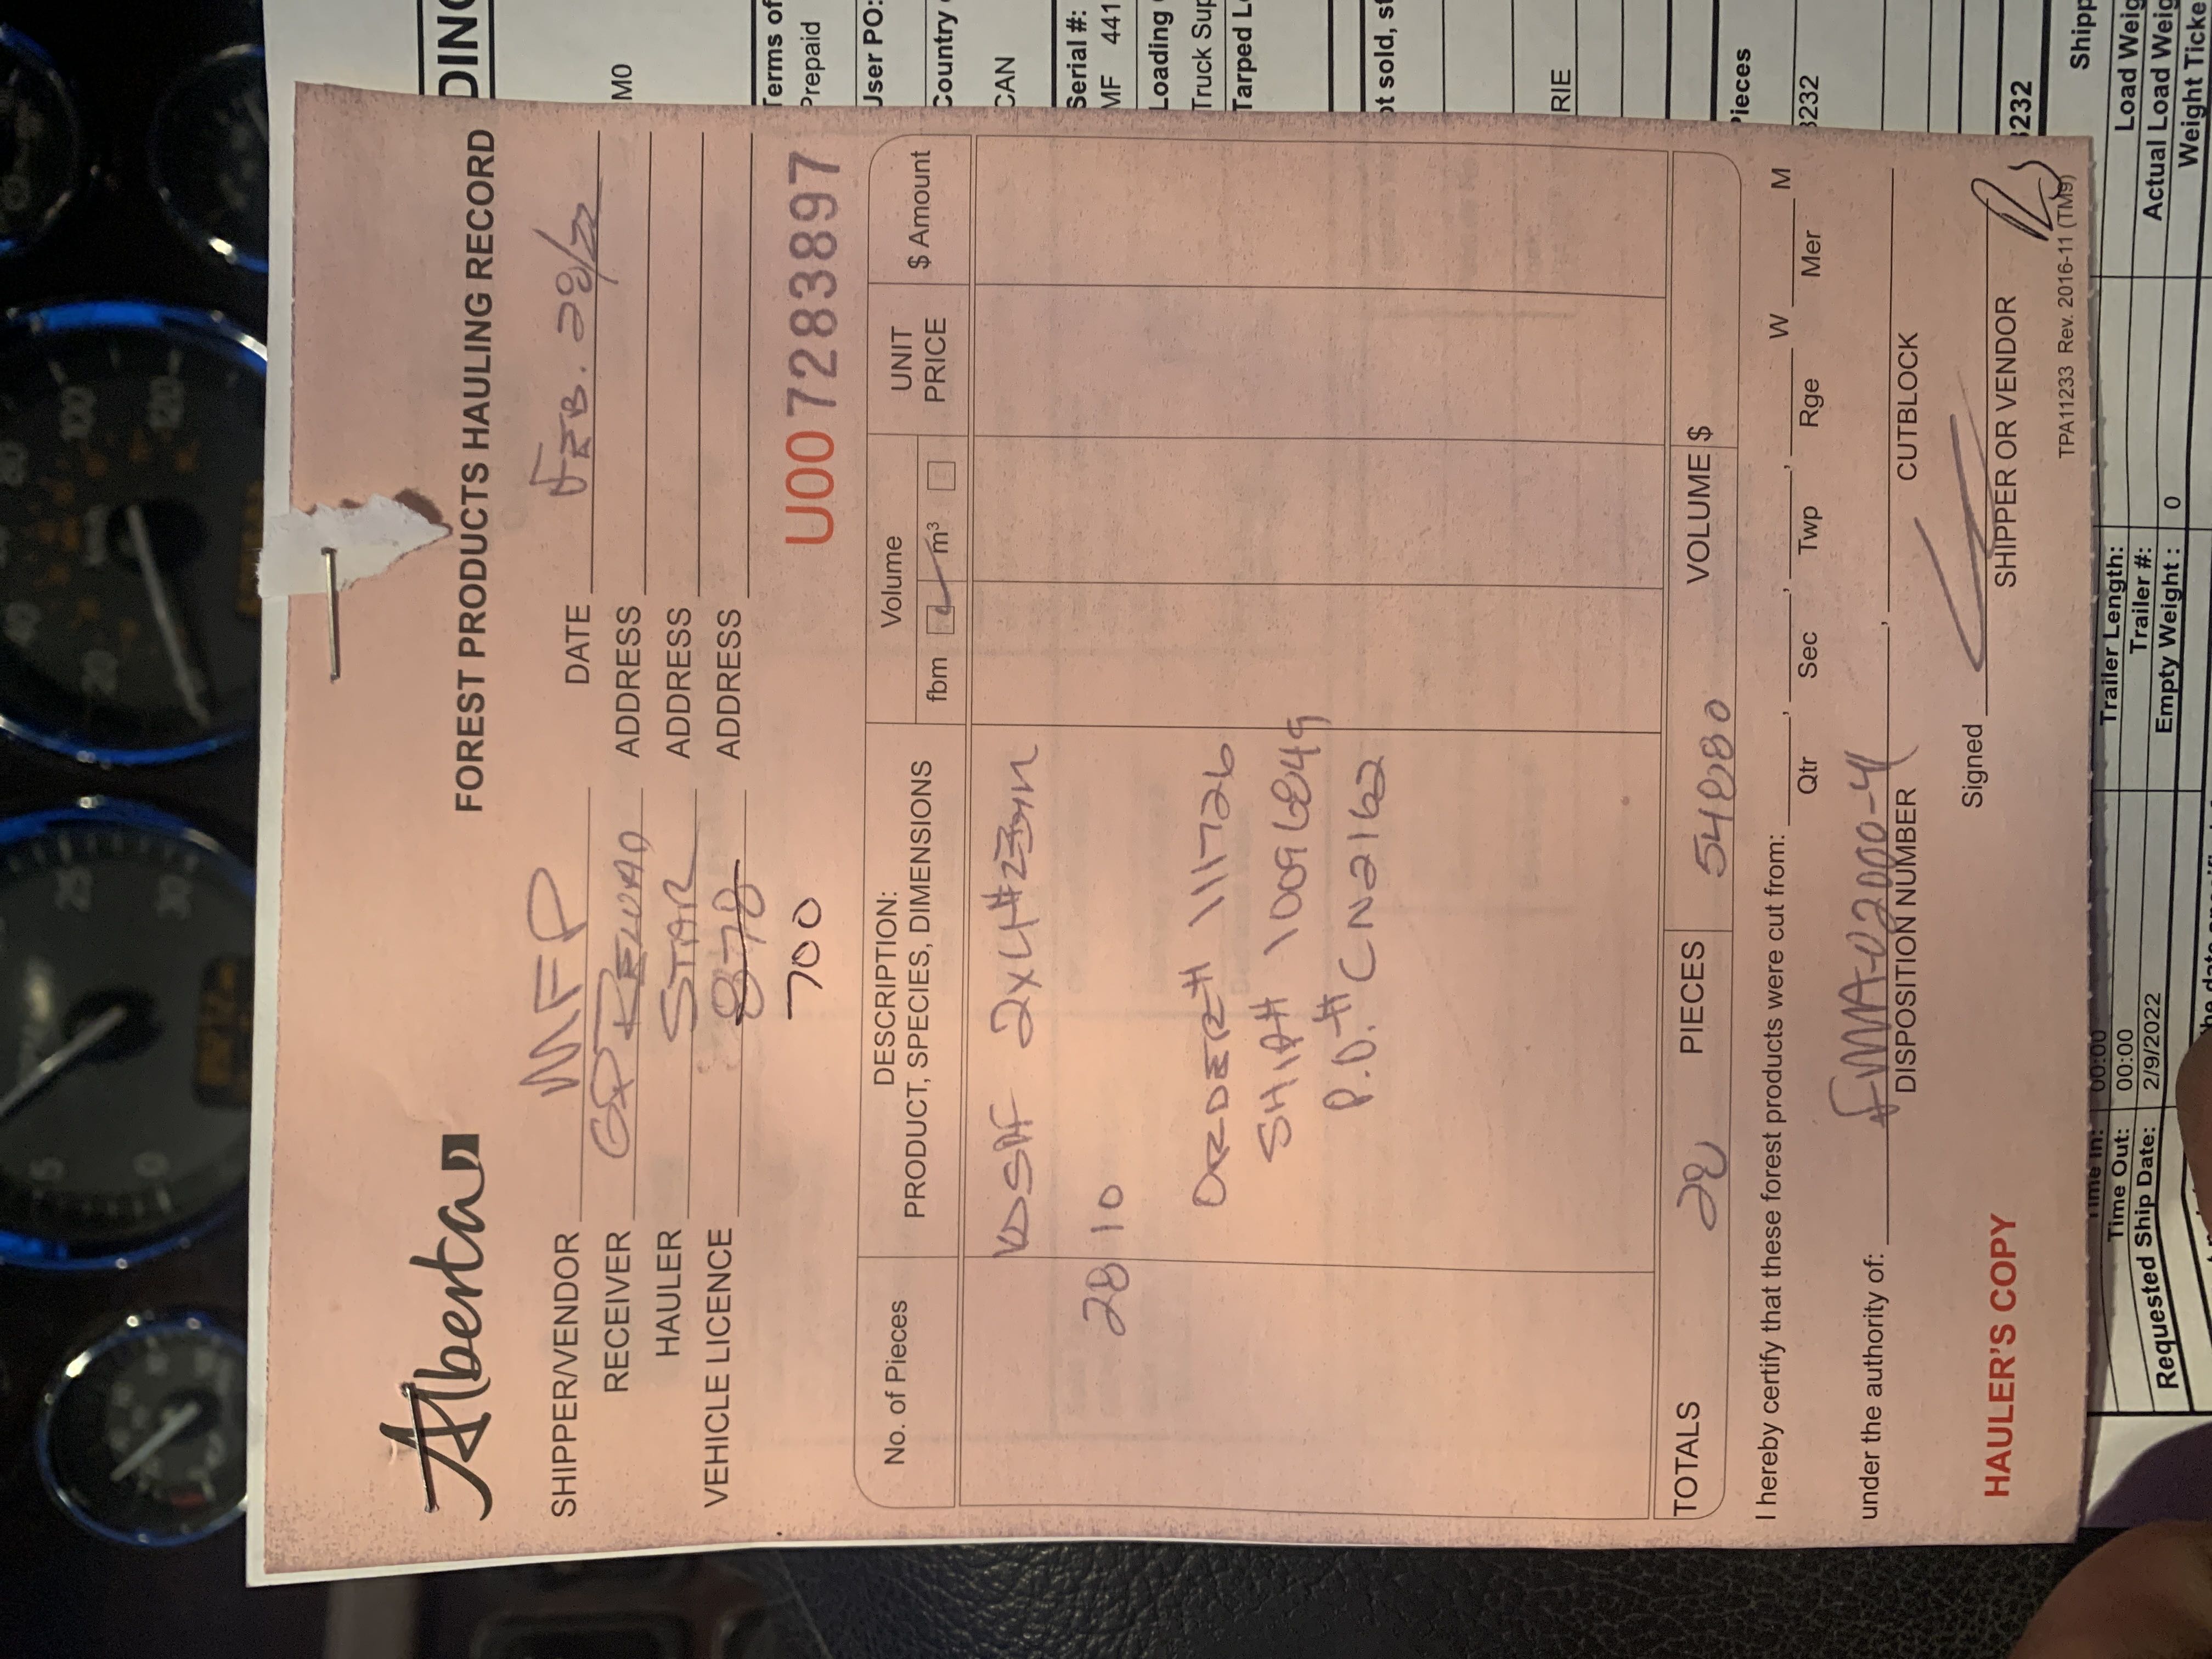 5
0
25
30
20
40
80
100
120
km/h
Alberta
FOREST PRODUCTS HAULING RECORD
SHIPPER/VENDOR MFP DATE FEB. 28/22
RECEIVER GP RELOAD ADDRESS
HAULER STAR ADDRESS
VEHICLE LICENCE 878 ADDRESS
700
U007283897
No. of Pieces
DESCRIPTION:
PRODUCT, SPECIES, DIMENSIONS
Volume
fbm m³
UNIT
PRICE
$ Amount
KDSPF 2x4 #2
28 10
ORDER# 111726
SHIP# 10096849
P.O.# CN2162
TOTALS 28 PIECES 54880 VOLUME $
I hereby certify that these forest products were cut from: , , , W M
Qtr Sec Twp Rge Mer
under the authority of: FMA-02000-4 ,
DISPOSITION NUMBER CUTBLOCK
Signed
SHIPPER OR VENDOR
HAULER'S COPY
TPA11233 Rev. 2016-11 (TM9)
DING
M0
Terms of
Prepaid
User PO:
Country
CAN
Serial #:
MF 441
Loading
Truck Sup
Tarped L
ot sold, st
RIE
Pieces
3232
3232
Time In: 00:00
Time Out: 00:00
Requested Ship Date: 2/9/2022
Trailer Length:
Trailer #:
Empty Weight : 0
Shipp
Load Weig
Actual Load Weig
Weight Ticke
he date